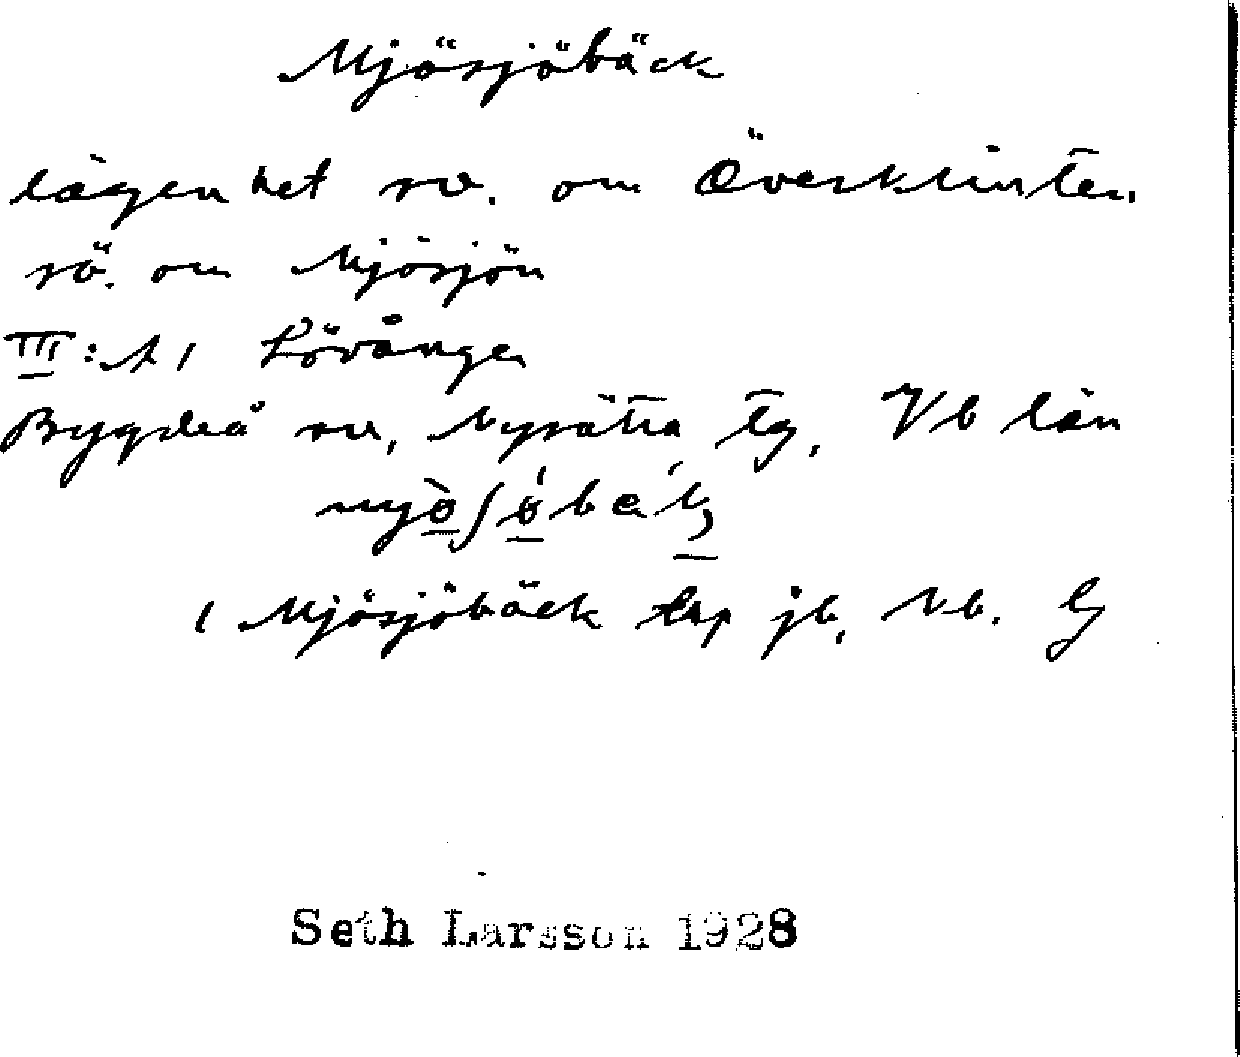 Mjösjöbäck
lägenhet sv. om Överklinten
sö. om Mjösjön
III: A1 Lövånger
Bygdeå sn, Nysätra tg, Vb län
1 Mjösjöbäck jb, Vb.
Seth Larsson 1928